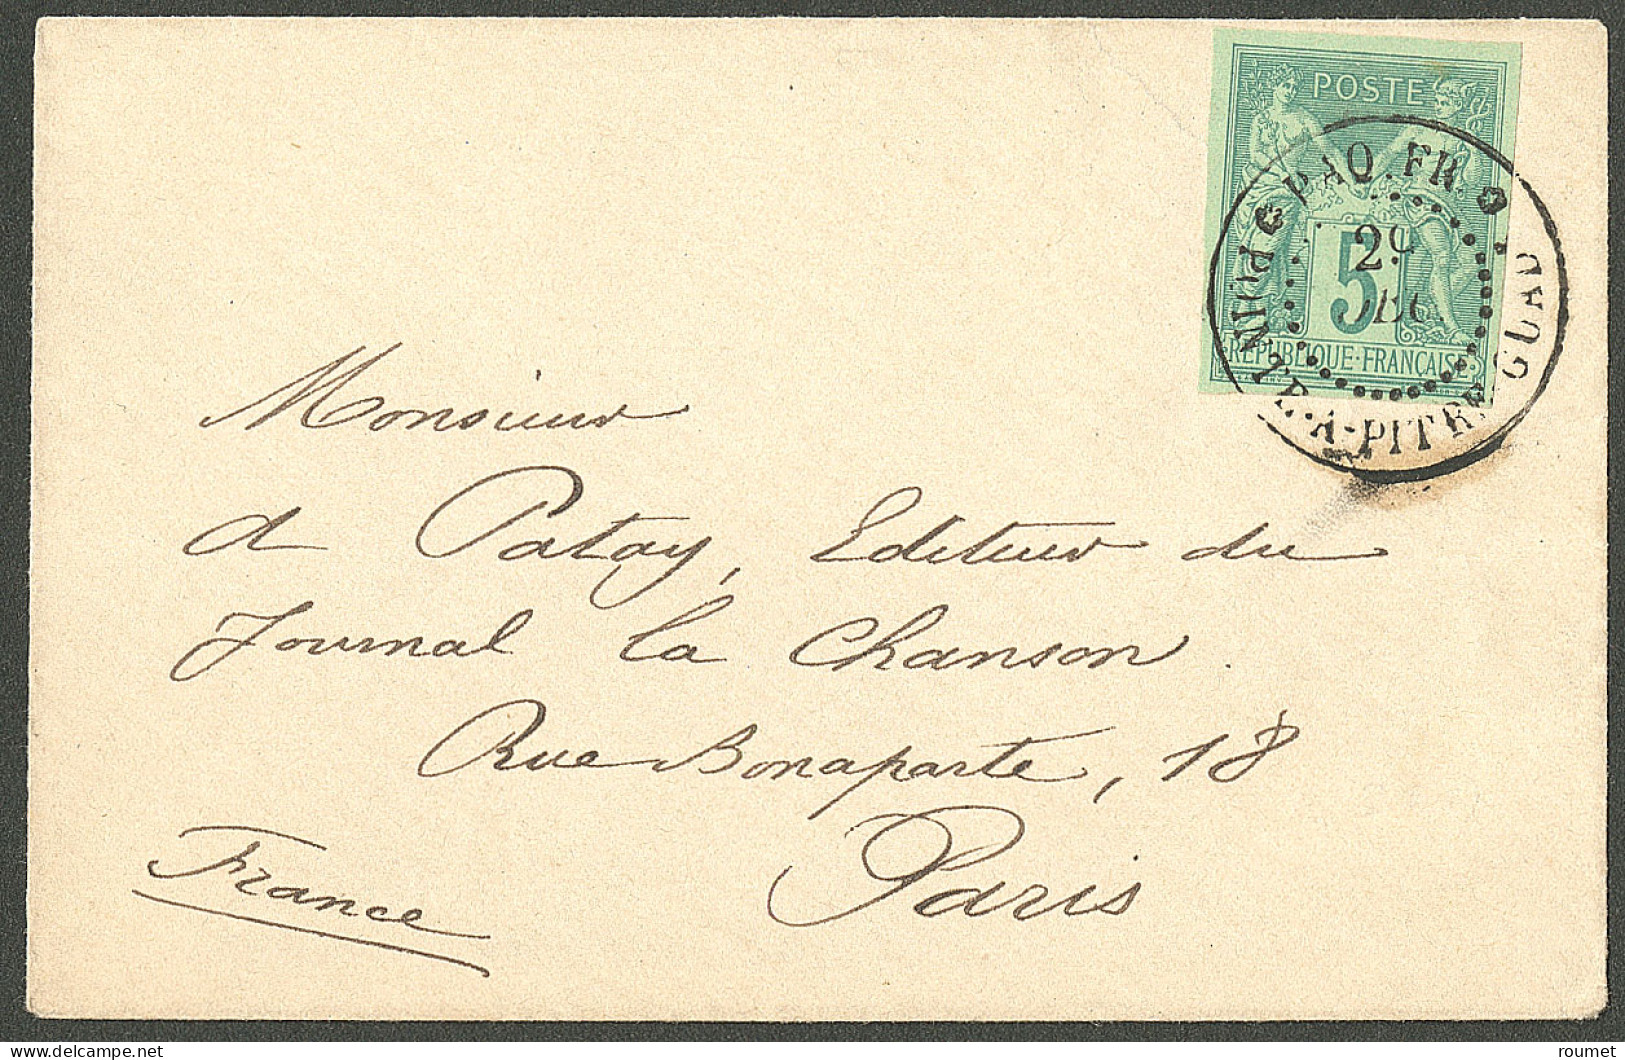 POSTE
5
RÉPUBLIQUE·FRANÇAISE
PAQ.FR.
29
POINTE·A·PITRE·GUAD
Monsieur
d Patay, Editeur du
Journal la Chanson
Rue Bonaparte, 18
Paris
France
delcampe.net
roumet